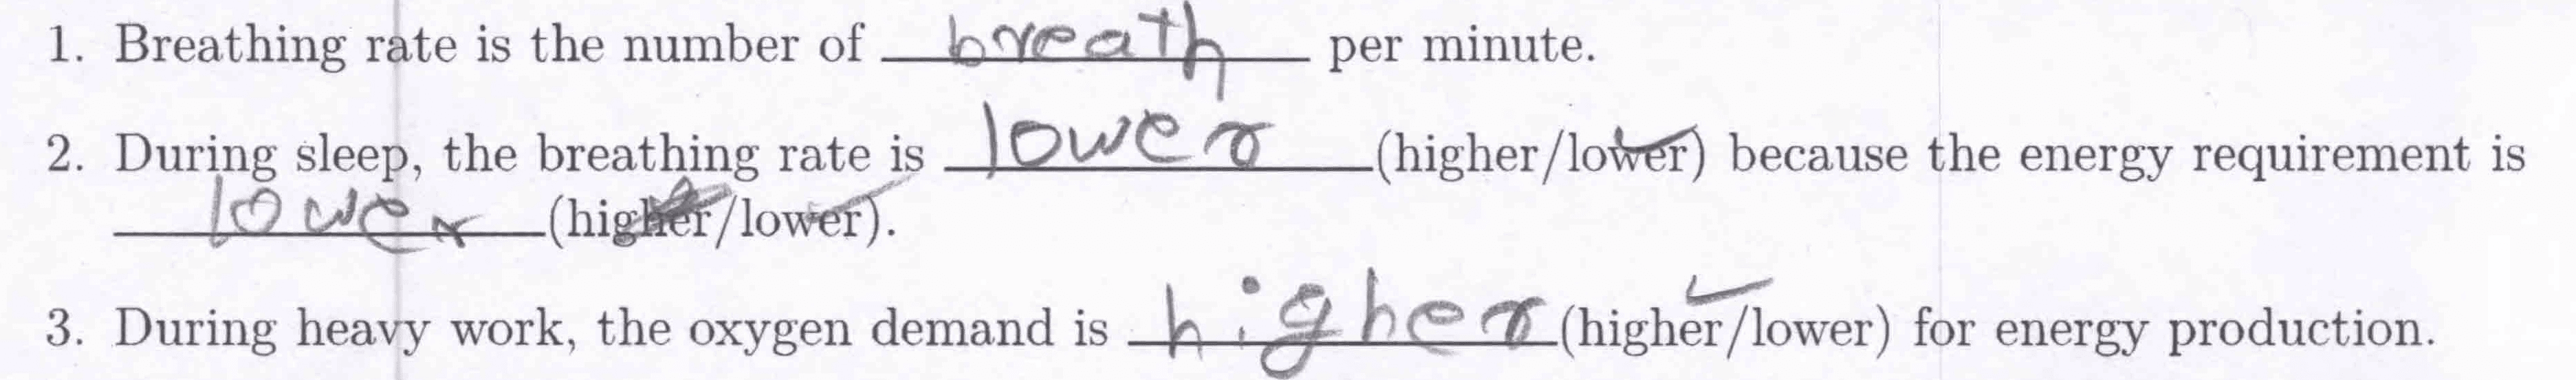 1. Breathing rate is the number of breath per minute.
2. During sleep, the breathing rate is lower (higher/lower) because the energy requirement is
lower (higher/lower).
3. During heavy work, the oxygen demand is higher (higher/lower) for energy production.